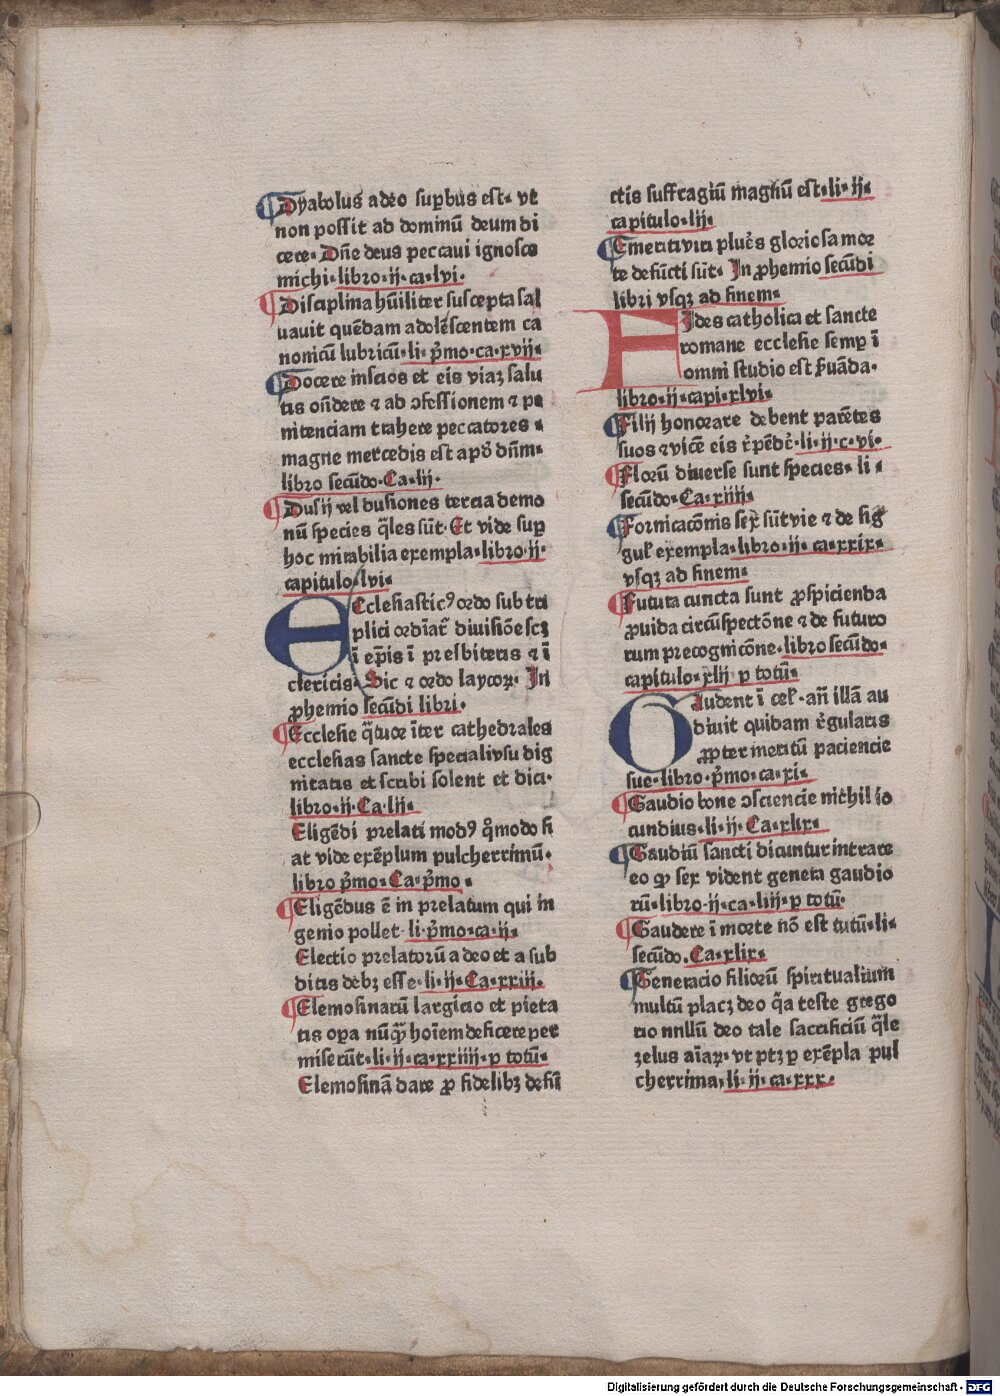 Dyabolus adeo suꝑbus est. vt
non possit ad dominū deum di
cere. Dn̄e deus peccaui ignosce
michi. libro. ij. ca. lvi.
Disciplina hūiliter suscepta sal
uauit quēdam adolēscentem ca
nonicū lubricū. li. p̄mo. ca. xvij.
Docere inscios et eis viaꝫ salu
tis on̄dere ⁊ ad ↄfessionem ⁊ pe
nitenciam trahere peccatores.
magne mercedis est apud dn̄m.
libro secūdo. Ca. lij.
Dusij vel dusiones tercia demo
nū species q̄les sūt. Et vide suꝑ
hoc mirabilia exempla. libro. ij.
capitulo. lvi.
Ecclesiasticꝰ ordo sub tri
plici ordīat᷑ diuisiōe scꝫ
ī ep̄is ī presbiteris ⁊ ī
clericis. Sic ⁊ ordo laycoꝝ. In
ꝓhemio secūdi libri.
Ecclesie q̄tuor īter cathedrales
ecclesias sancte specialiusu dig
nitatis et scribi solent et dici.
libro. ij. Ca. lij.
Eligēdi prelati modꝰ q̄modo fi
at vide exēplum pulcherrimū.
libro p̄mo. Ca. p̄mo.
Eligēdus ē in prelatum qui in
genio pollet. li. p̄mo. ca. ij.
Electio prelatorū a deo et a sub
ditis debꝫ esse. li. ij. Ca. xxiij.
Elemosinarū largicio et pieta
tis oꝑa nūꝙ̄ hoīem deficere per
miserūt. li. ij. ca. xxiiij. ꝑ totū.
Elemosinā dare ꝓ fidelibꝫ defū
ctis suffragiū magnū est. li. ij.
capitulo. lij.
Emeriti viri plures gloriosa mor
te defūcti sūt. In ꝓhemio secūdi
libri vsqꝫ ad finem.
Fides catholica et sancte
romane ecclesie semꝑ ī
omni studio est p̄uāda.
libro. ij. capi. xlvi.
Filij honorare debent parētes
suos ⁊ vicē eis rēpēdē. li. ij. c. vi.
Florū diuerse sunt species. li.
secūdo. Ca. xiiij.
Fornicacōnis sex sūt vie ⁊ de sig
gul' exempla. libro. ij. ca. xxix.
vsqꝫ ad finem.
Futura cuncta sunt ꝓspicienda
ꝓuida circūspectōne ⁊ de futuro
rum precognicōne. libro secūdo.
capitulo. xlij ꝑ totū.
Gaudent ī cel'. an̄ illā au
diuit quidam rēgularis
ꝓpter meritū paciencie
sue. libro. p̄mo. ca. xi.
Gaudio bone ↄsciencie nichil io
cundius. li. ij. Ca. xlix.
Gaudiū sancti dicuntur intrare
eo ꝙ sex vident genera gaudio
rū. libro. ij. ca. liij. ꝑ totū.
Gaudere ī morte nō est tutū. li.
secūdo. Ca. xlix.
Generacio filiorū spiritualium
multū placꝫ deo q̄a teste grego
rio nnllū deo tale sacrificiū q̄le
zelus aīaꝝ. vt ptꝫ ꝑ exēpla pul
cherrima. li. ij. ca. xxx.
Digitalisierung gefördert durch die Deutsche Forschungsgemeinschaft - DFG